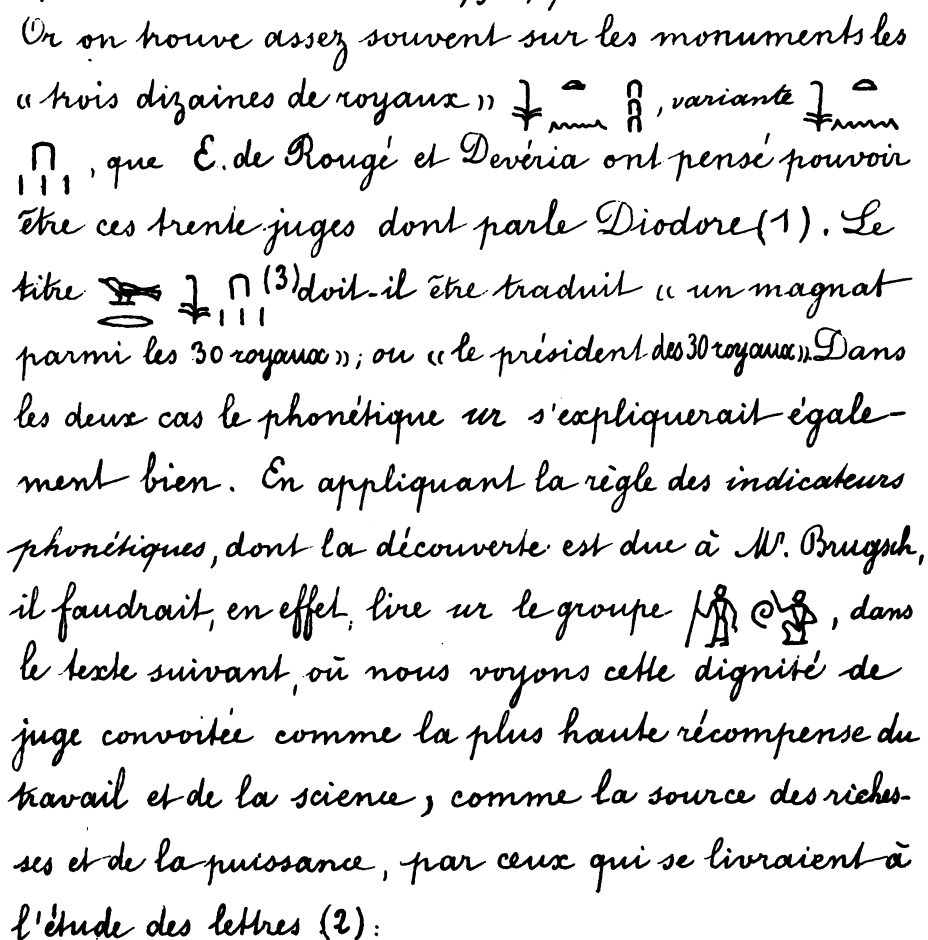 Or on trouve assez souvent sur les monuments les
« trois dizaines de royaux » 𓇓 𓏏 𓈖 𓎆𓎆𓎆, variante 𓇓 𓏏 𓈖
𓎆 𓏥, que E. de Rougé et Devéria ont pensé pouvoir
être ces trente juges dont parle Diodore (1). Le
titre 𓅨 𓂋 𓇓 𓎆 𓏥 (3) doit-il être traduit « un magnat
parmi les 30 royaux »; ou « le président des 30 royaux». Dans
les deux cas le phonétique ur s'expliquerait égale-
ment bien. En appliquant la règle des indicateurs
phonétiques, dont la découverte est due à M. Brugsch,
il faudrait, en effet, lire ur le groupe 𓀗 𓏲 𓀀, dans
le texte suivant, où nous voyons cette dignité de
juge convoitée comme la plus haute récompense du
travail et de la science, comme la source des riches-
ses et de la puissance, par ceux qui se livraient à
l'étude des lettres (2):